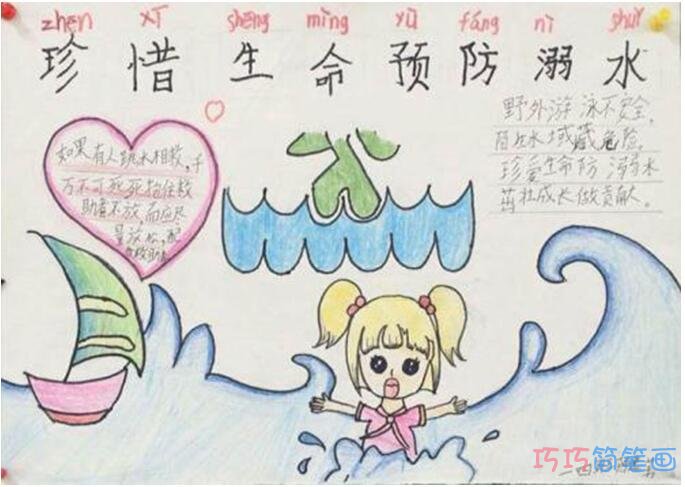 zhēn xī shēng mìng yù fáng nì shuǐ
珍惜生命预防溺水
如果有人跳水相救,千
万不可死死抱住救
助者不放,而应尽
量放松,配
合救助
野外游泳不安全,
陌生水域藏危险。
珍爱生命防溺水
茁壮成长做贡献。
巧巧简笔画